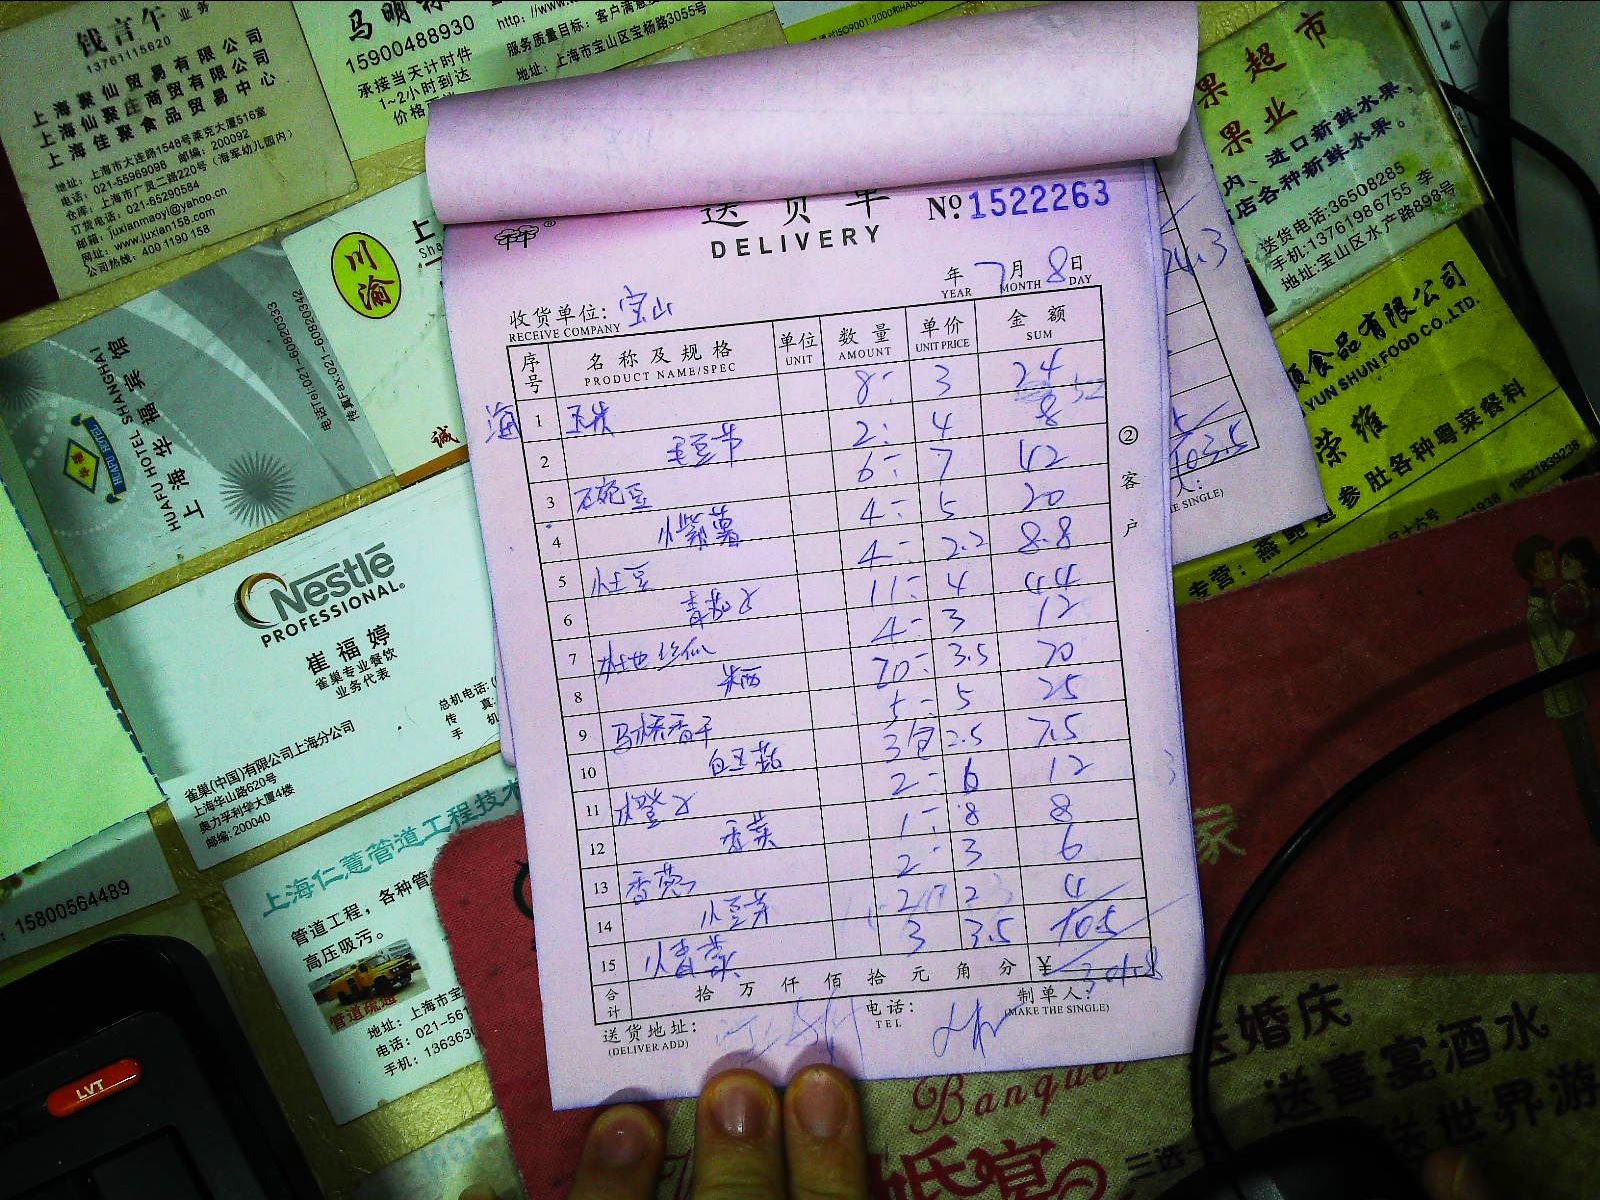 钱言午 业务
13761115620
上海聚仙贸易有限公司
上海仙聚庄商贸有限公司
上海佳聚食品贸易中心
地址：上海市大连路1548号莱克大厦516室
电话：021-55969098 邮编：200092
仓库：上海市广灵二路220号（海军幼儿园内）
订货电话：021-65290584
邮箱：juxianmaoyi@yahoo.cn
网址：www.juxian158.com
公司热线：400 1190 158
马明
15900488930
承接当天计时件
1~2小时到达
价格
http://www.
服务质量目标：客户满意
地址：上海市宝山区宝杨路3055号
果超市
果业
进口新鲜水果，
店各种新鲜水果。
送货电话:36508285
手机:13761986755 李
地址:宝山区水产路898号
川渝
上
Sha
诚
HUAFU HOTEL
HUAFU HOTEL SHANGHAI
上海华福宾馆
电话Tel:021-60820333
传真Fax:021-60820342
Nestlé
PROFESSIONAL.
崔福婷
雀巢专业餐饮
业务代表
雀巢(中国)有限公司上海分公司
上海华山路620号
奥力孚利华大厦4楼
邮编:200040
总机电话:(
传 真
手 机
上海仁薏管道工程技术
管道工程，各种管
高压吸污。
管道疏通
地址：上海市宝
电话：021-561
手机：13636
15800564489
LVT
送货单
DELIVERY
№ 1522263
年 7月 8日
YEAR MONTH DAY
收货单位：宝山
RECEIVE COMPANY
序号 名称及规格 单位 数量 单价 金额
PRODUCT NAME/SPEC UNIT AMOUNT UNIT PRICE SUM
海
1 8 3 24
2 毛豆节 2 4 8
3 豆 6 7 42
4 小紫薯 4 5 20
5 小土豆 4 2.2 8.8
6 青茄子 11 4 44
7 本地丝瓜 4 3 12
8 20 3.5 70
9 马桥香干 5 5 25
10 白玉菇 3包 2.5 7.5
11 水橙子 2 6 12
12 香菜 1 8 8
13 香葱 2 3 6
14 小豆芽 2 2 4
15 小青菜 3 3.5 10.5
合计 拾 万 仟 佰 拾 元 角 分 ¥ 301.8
送货地址：
(DELIVER ADD)
电话：
TEL
制单人：
(MAKE THE SINGLE)
② 客户
24.3
103.5
人：
E SINGLE)
顺食品有限公司
YUN SHUN FOOD CO.,LTD.
荣维
参肚各种粤菜餐料
专营：燕鲍
18621839238
家
送婚庆
送喜宴酒水
送世界游
Banquet
婚宴
三选